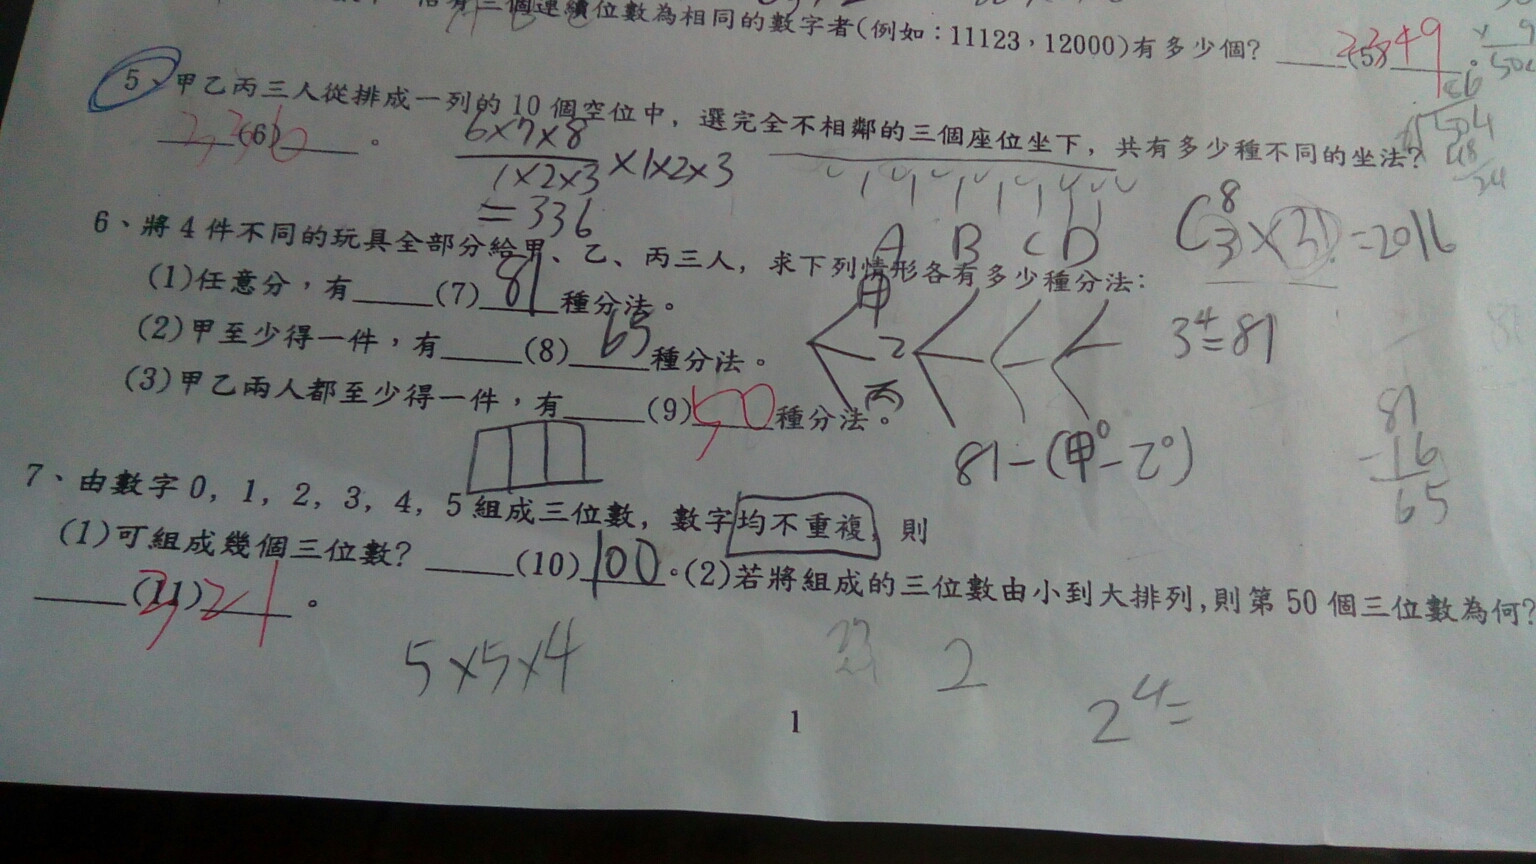 三個連續位數為相同的數字者(例如：11123，12000)有多少個? ____(5)____。
249
5、甲乙丙三人從排成一列的10個空位中，選完全不相鄰的三個座位坐下，共有多少種不同的坐法?
____(6)____。
336
6×7×8
1×2×3
×1×2×3
=336
C 8 3 ×(3!)=2016
6、將4件不同的玩具全部分給甲、乙、丙三人，求下列情形各有多少種分法：
A B C D
(1)任意分，有____(7) 81 種分法。
甲
乙
丙
3⁴=81
(2)甲至少得一件，有____(8) 65 種分法。
(3)甲乙兩人都至少得一件，有____(9) 50 種分法。
81-(甲⁰-乙⁰)
81
-16
65
7、由數字0，1，2，3，4，5組成三位數，數字均不重複，則
(1)可組成幾個三位數? ____(10) 100 。(2)若將組成的三位數由小到大排列,則第50個三位數為何?
____(11)____。
321
5×5×4
2
2⁴=
1